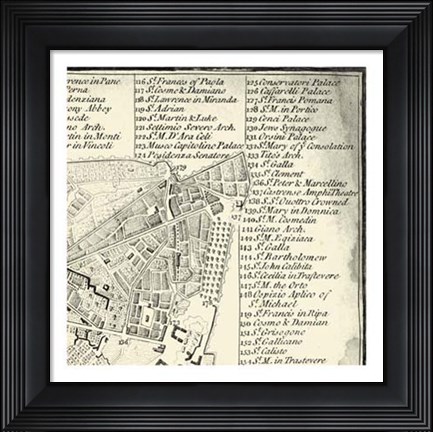 rence in Pane
Perna
denziana
ony Abbey
ssede
no Arch.
tin in Monti
r in Vincoli
116 St. Francs of Paola
117 St. Cosme & Damiano
118 St. Lawrence in Miranda
119 St. Adrian
120 St. Martin & Luke
121 Settimio Severo Arch.
122 St. M. D'Ara Cœli
123 Museo Capitolino Palace
124 Residenza Senatore
125 Conservatori Palace
126 Caffarelli Palace
127 St. Francis Romana
128 St. M. in Portico
129 Cenci Palace
130 Jews Synagogue
131 Orsini Palace
132 St. Mary of ye Consolation
133 Tito's Arch.
134 St. Galla
135 St. Clement
136 St. Peter & Marcellino
137 Castrense AmphiTheatre
138 S.S. Quottro Crowned
139 St. Mary in Domnica
140 St. M. Cosmedin
141 Giano Arch
142 St. M. Egiziaca
143 St. Galla
144 St. Bartholomew
145 St. John Calibita
146 St. Cecilia in Trastevere
147 St. M. the Orto
148 Copizio Aplico of
St. Michael
149 St. Francis in Ripa
150 Cosme & Damian
151 St. Grisogone
152 St. Gallicano
153 St. Calisto
154 St. M. in Trastevere
129
137
126